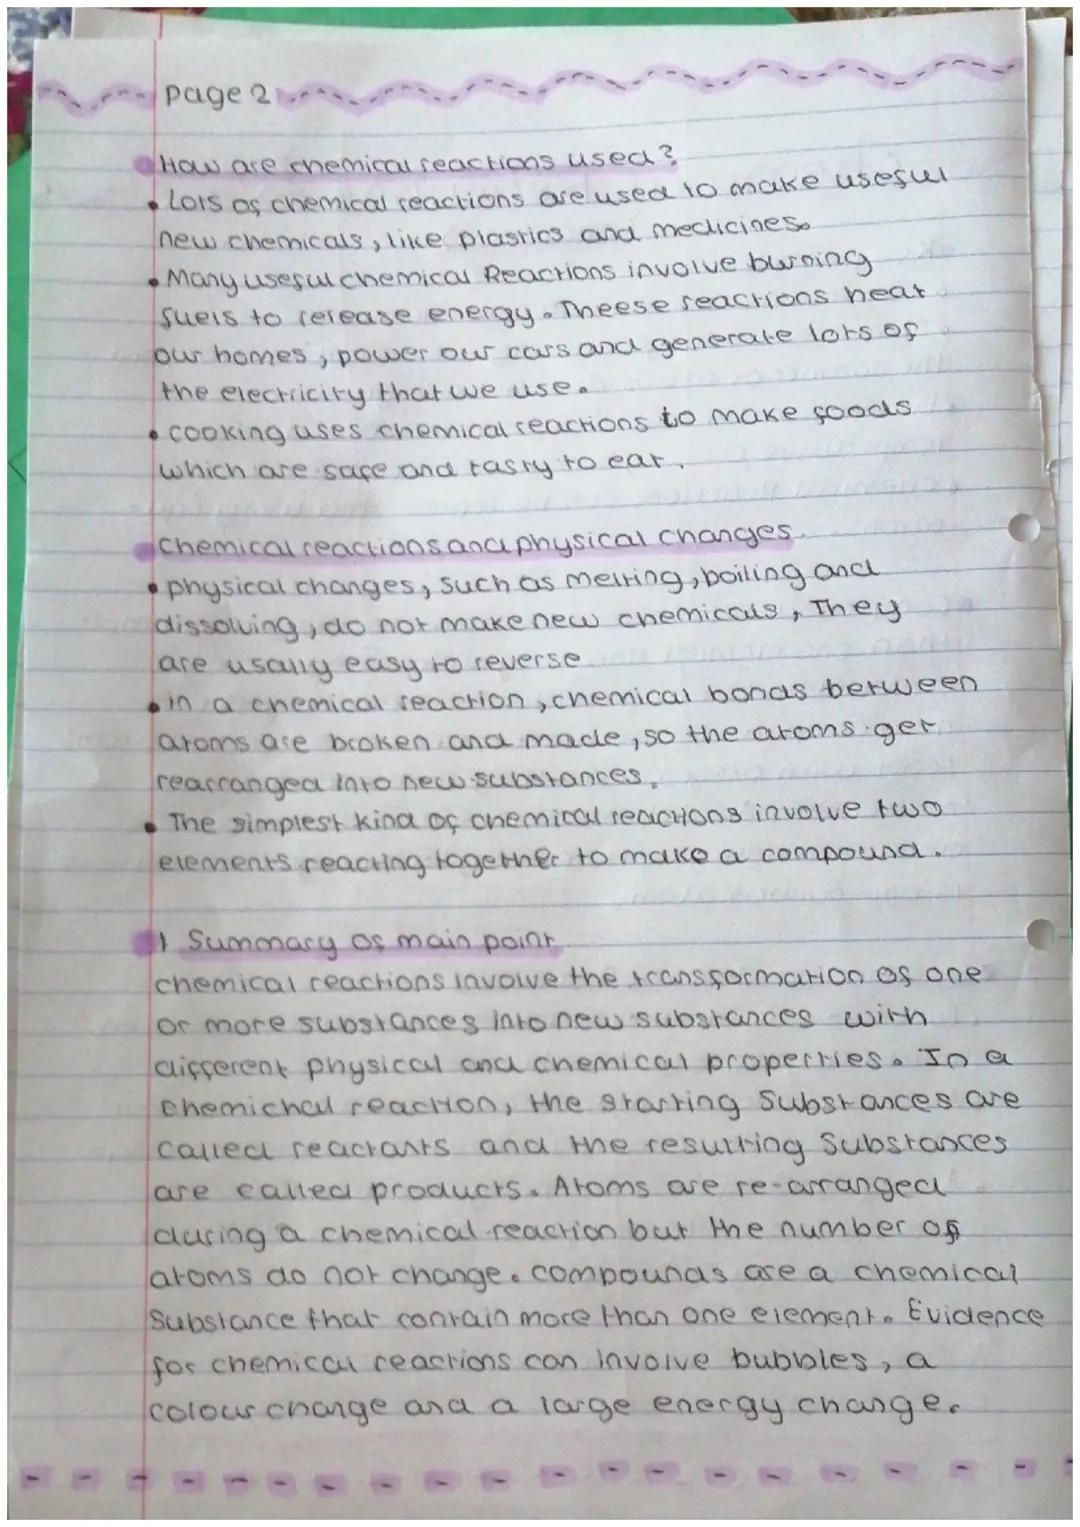 page 2
How are chemical reactions used?
• Lots of chemical reactions are used to make useful
new chemicals, like plastics and medicines.
• Many useful chemical Reactions involve burning
fuels to release energy. Theese reactions heat
our homes, power our cars and generate lots of
the electricity that we use.
• cooking uses chemical reactions to make foods
which are safe and tasty to eat.
Chemical reactions and physical changes.
• physical changes, such as melting, boiling and
dissolving, do not make new chemicals, They
are usally easy to reverse
• in a chemical reaction, chemical bonds between
atoms are broken and made, so the atoms get
rearranged into new substances.
• The simplest kind of chemical reactions involve two
elements reacting together to make a compound.
1 Summary of main point
chemical reactions involve the transformation of one
or more substances into new substances with
different physical and chemical properties. In a
chemichal reaction, the starting Substances are
called reactants and the resulting Substances
are called products. Atoms are re-arranged
during a chemical reaction but the number of
atoms do not change. compounds are a chemical
Substance that contain more than one element. Evidence
for chemical reactions can involve bubbles, a
colour change and a large energy change.